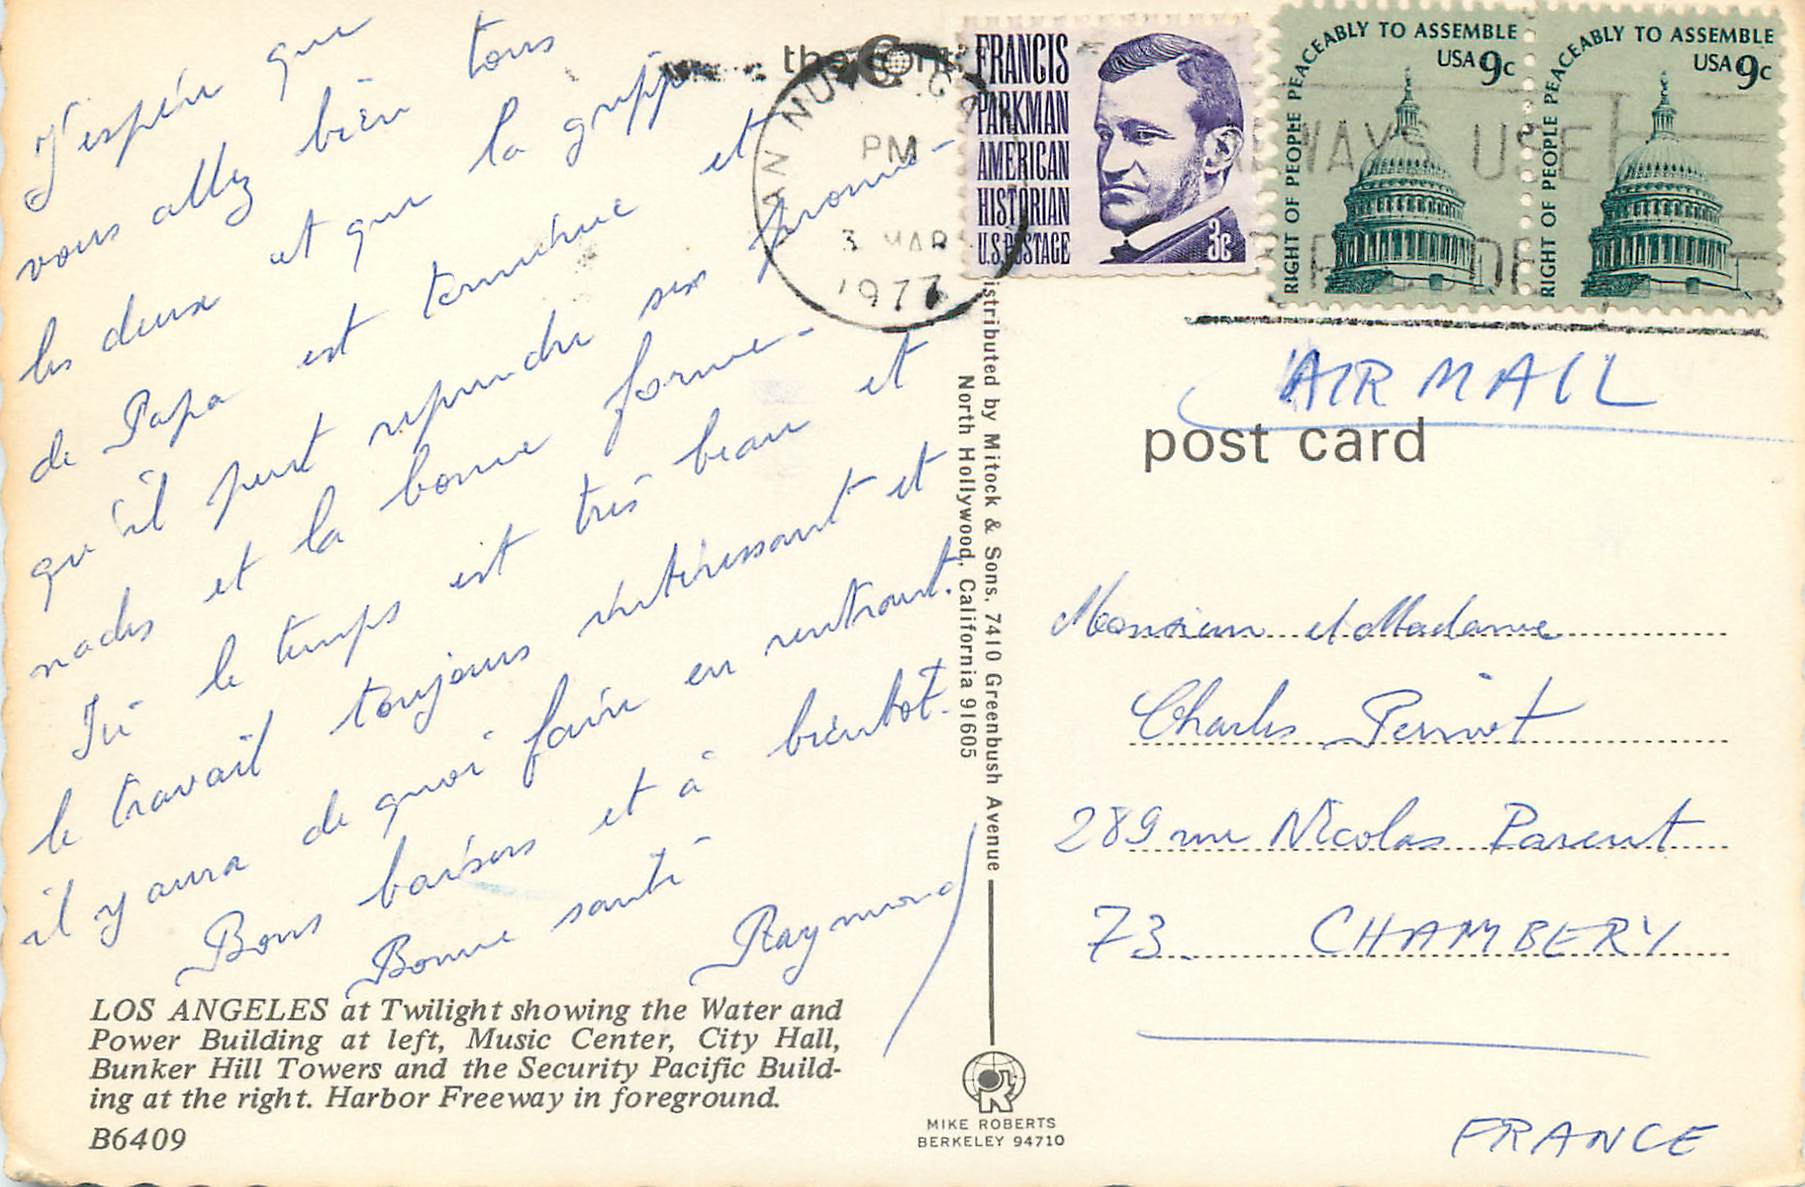 J'espère que
vous allez bien tous
les deux et que la grippe
de Papa est terminée et
qu'il peut reprendre ses prome-
nades et la bonne forme -
Ici le temps est très beau et
le travail toujours intéressant et
il y aura de quoi faire en rentrant.
Bons baisers et à bientôt.
Bonne santé
Raymond
LOS ANGELES at Twilight showing the Water and
Power Building at left, Music Center, City Hall,
Bunker Hill Towers and the Security Pacific Build-
ing at the right. Harbor Freeway in foreground.
B6409
VAN NUYS, CA
PM
3 MAR
1977
FRANCIS
PARKMAN
AMERICAN
HISTORIAN
U.S. POSTAGE
3c
RIGHT OF PEOPLE PEACEABLY TO ASSEMBLE
USA 9c
RIGHT OF PEOPLE PEACEABLY TO ASSEMBLE
USA 9c
ALWAYS USE
ZIP CODE
istributed by Mitock & Sons, 7410 Greenbush Avenue
North Hollywood, California 91605
MIKE ROBERTS
BERKELEY 94710
AIR MAIL
post card
Monsieur et Madame
Charles Perinot
289 rue Nicolas Parent
73. CHAMBERY
FRANCE